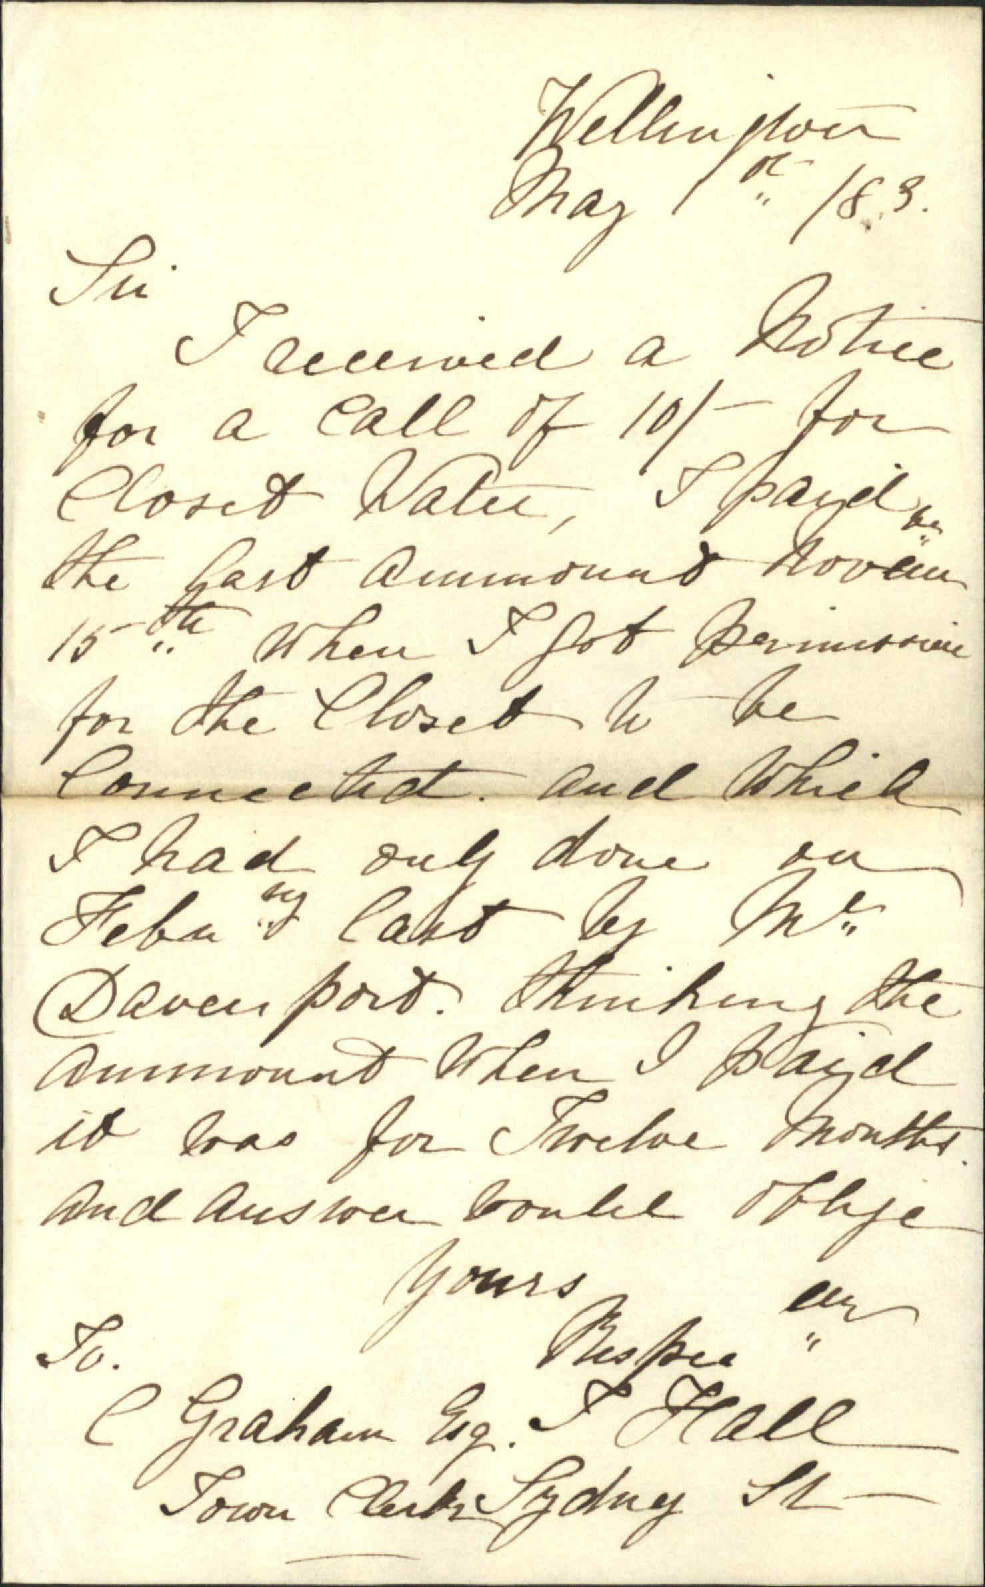 Wellington
May 1st /83.
Sir
I received a Notice
for a Call of 10/- for
Closet Water, I payd
the Last Ammount Novem ber
15th When I Got Permission
for the Closet to be
Connected. and Which
I had only done on
Febu ry last by Mr
Davenport. thinking the
Ammount When I payd
it Was for Twelve Months.
and Answer Would Oblige
Yours
Respec
To.
C Graham Esq. T Hall
Town Clerk Sydney St